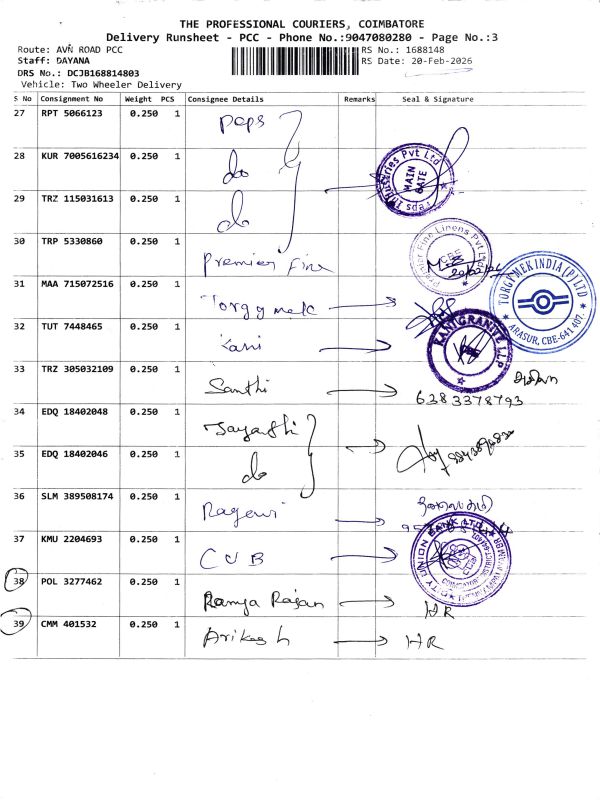 THE PROFESSIONAL COURIERS, COIMBATORE
Delivery Runsheet - PCC - Phone No.:9047080280 - Page No.:3
Route: AVN ROAD PCC
RS No.: 1688148
Staff: DAYANA
RS Date: 20-Feb-2026
DRS No.: DCJB168814803
Vehicle: Two Wheeler Delivery
S No Consignment No Weight PCS Consignee Details Remarks Seal & Signature
27 RPT 5066123 0.250 1 peps
28 KUR 7005616234 0.250 1 do
Industries Pvt Ltd
MAIN GATE
29 TRZ 115031613 0.250 1 do
30 TRP 5330860 0.250 1 Premier Fine
Premier Fine Linens Pvt Ltd
CBE
31 MAA 715072516 0.250 1 Torgymek
TORGYMEK INDIA (P) LTD
ARASUR, CBE-641 407.
32 TUT 7448465 0.250 1 Rani
RANI GRANITE LLP
33 TRZ 305032109 0.250 1 Santhi
6383378793
34 EDQ 18402048 0.250 1 Jayanthi
35 EDQ 18402046 0.250 1 do
36 SLM 389508174 0.250 1
37 KMU 2204693 0.250 1 CUB
CITY UNION BANK LTD.
38 POL 3277462 0.250 1 Ramya Rajan HR
39 CMM 401532 0.250 1 HR